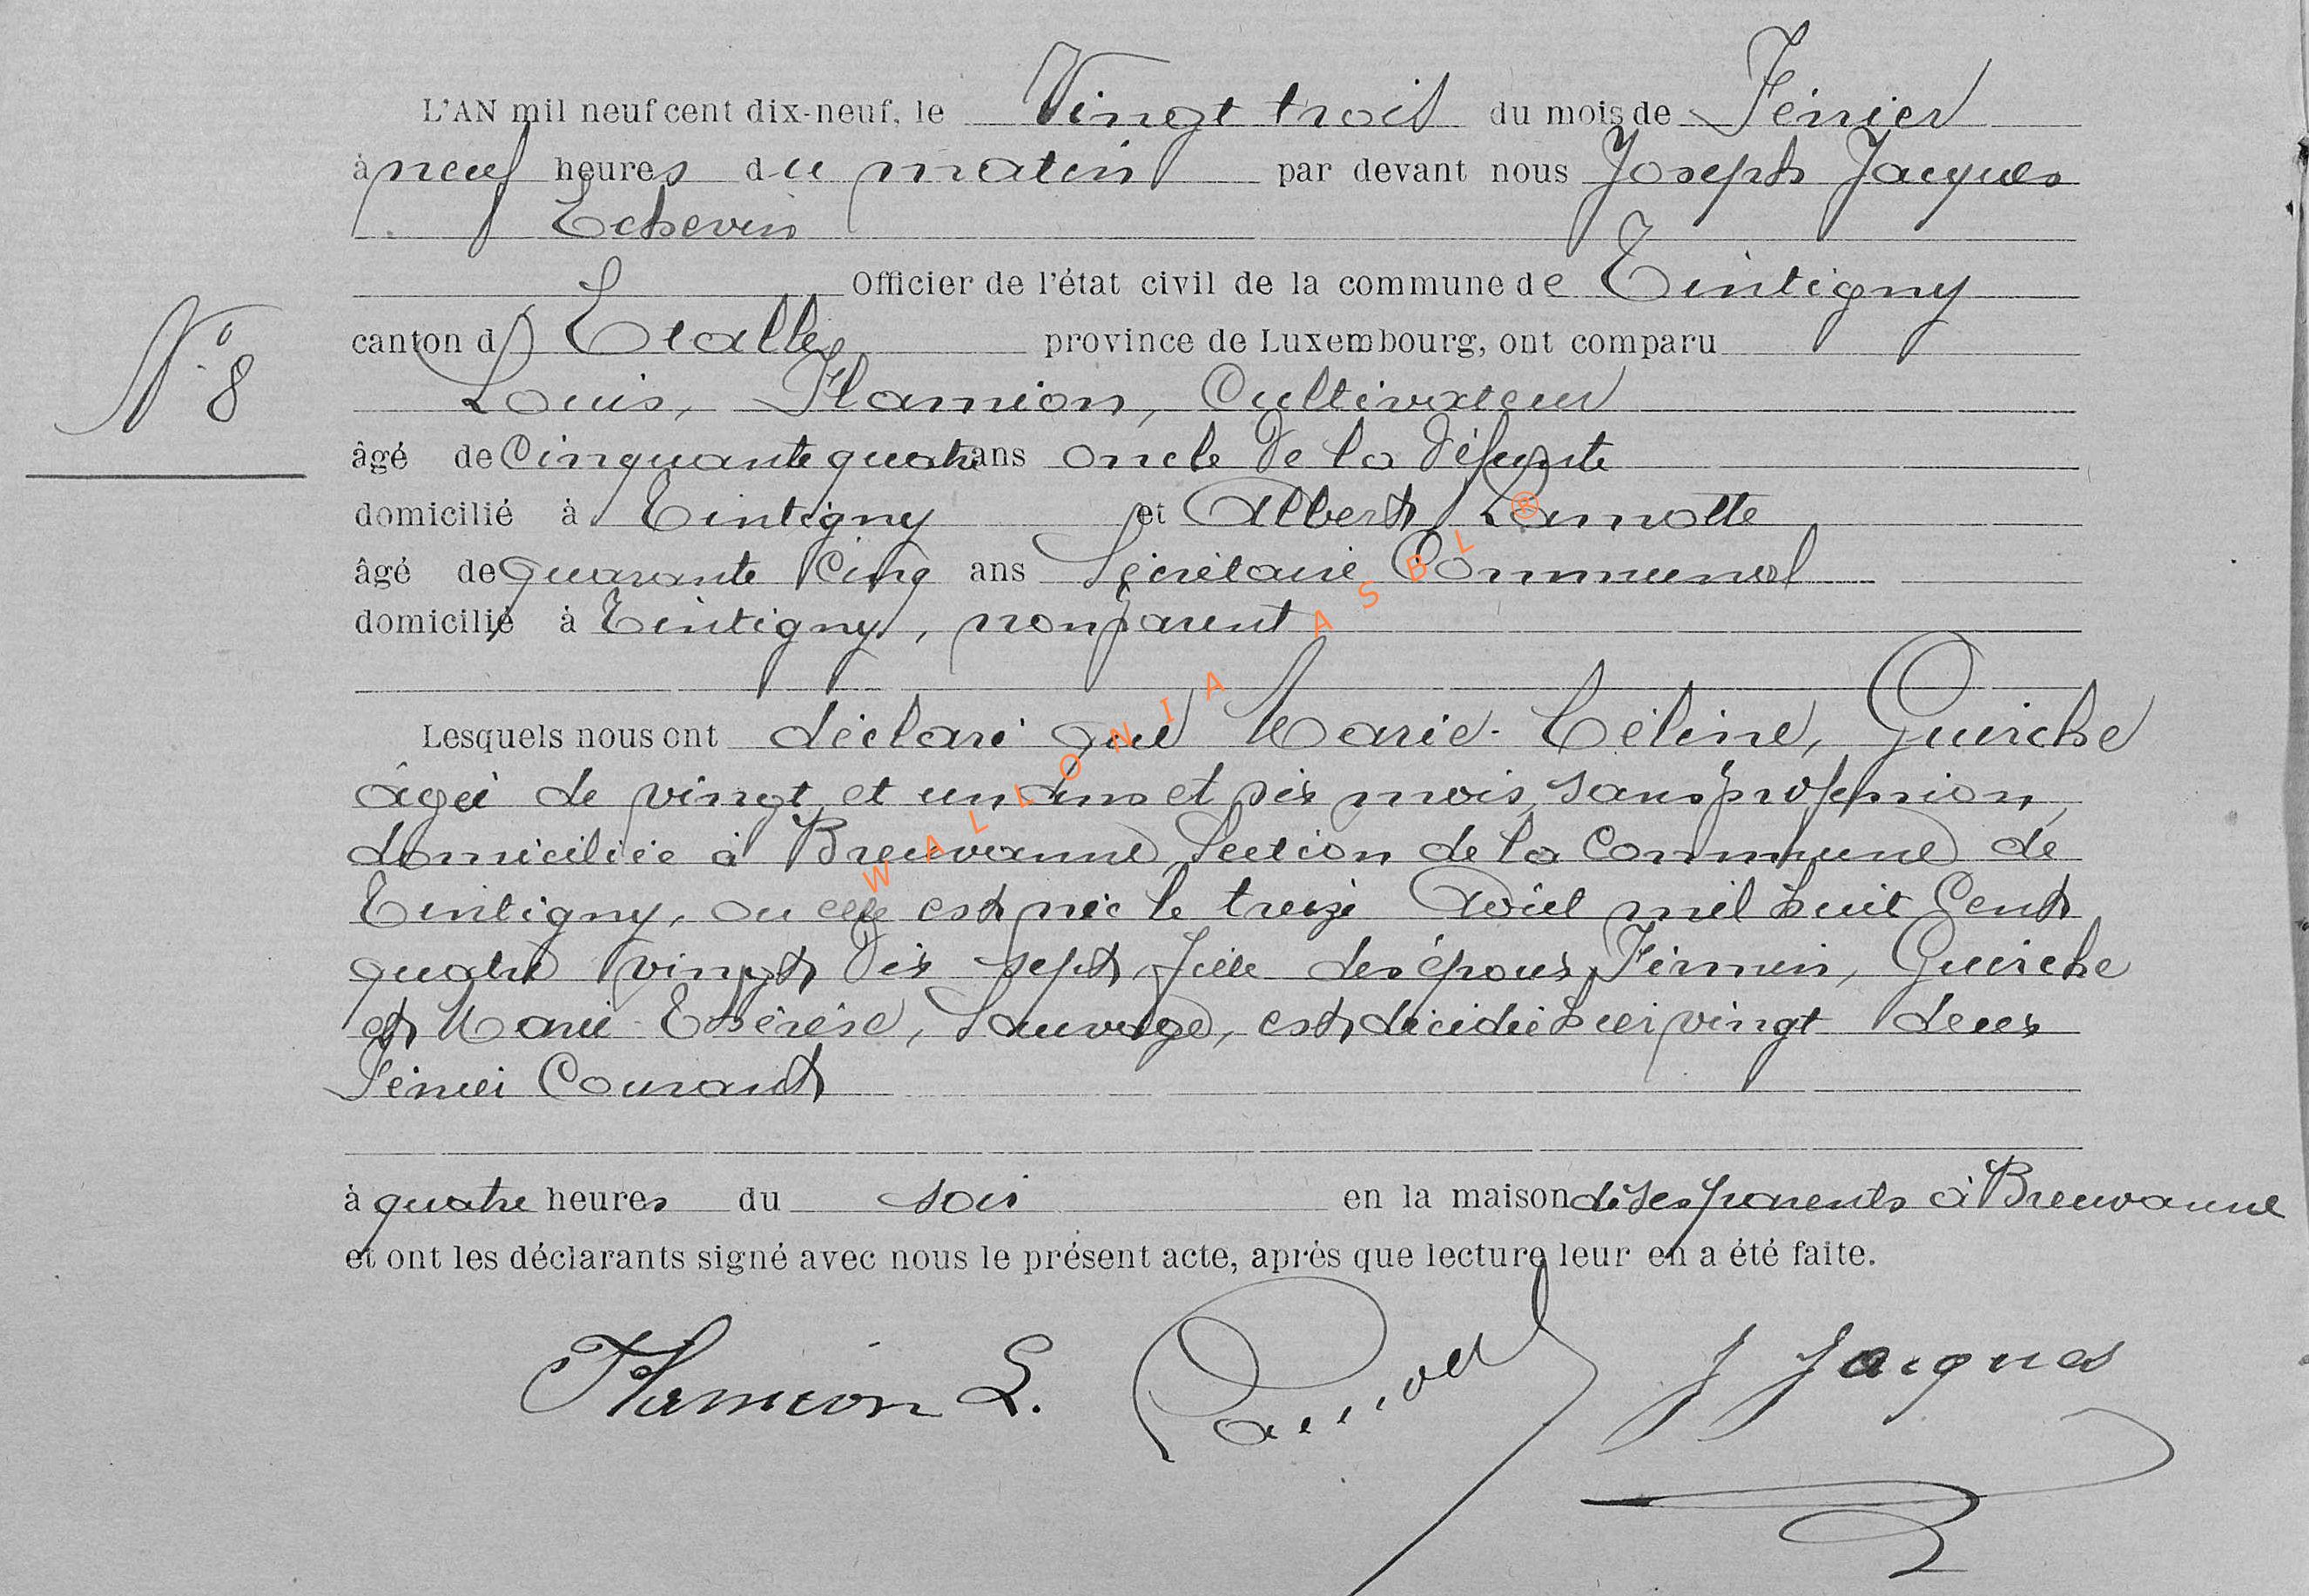 L'AN mil neuf cent dix-neuf, le Vingt trois du mois de Février
à neuf heures du matin par devant nous Joseph Jacques
Echevin
Officier de l'état civil de la commune de Tintigny
canton d'Etalle province de Luxembourg, ont comparu
N° 8
Louis, Flamion, Cultivateur
âgé de Cinquante quatre ans oncle de la défunte
domicilié à Tintigny et Albert Lamotte
âgé de quarante Cinq ans Sécrétaire Communal
domicilié à Tintigny, non parent
Lesquels nous ont déclaré que Marie-Céline, Guiche
âgée de vingt et un ans et six mois, sans profession,
domiciliée à Breuvanne, Section de la Commune de
Tintigny, ou elle est née le treize Août mil huit Cent
quatre vingt dix sept, fille des époux Firmin, Guiche
et Marie-Thérèse, Sauvage, est décédée hier vingt deux
Février Courant
à quatre heures du soir en la maison de ses parents à Breuvanne
et ont les déclarants signé avec nous le présent acte, après que lecture leur en a été faite.
Flamion L. J Jacques
WALLONIA ASBL ®